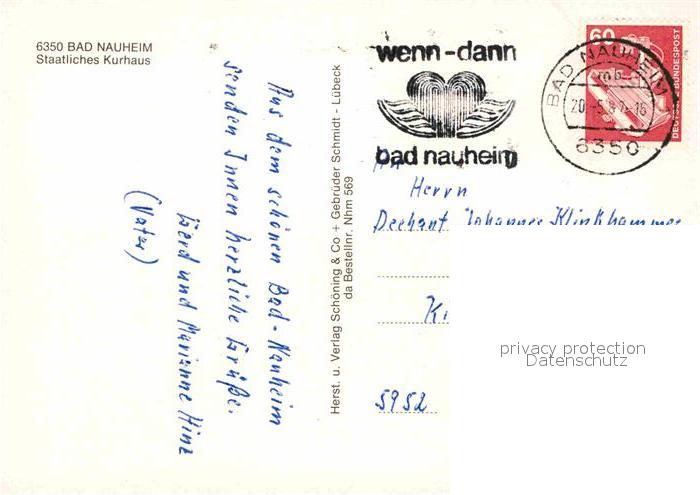 6350 BAD NAUHEIM
Staatliches Kurhaus
Aus dem schönen Bad-Nauheim
senden Ihnen herzliche Grüße.
Gerd und Marianne Hinz
(Vater)
Herst. u. Verlag Schöning & Co + Gebrüder Schmidt - Lübeck
da Bestellnr. Nhm 569
wenn-dann
bad nauheim
BAD NAUHEIM
mb
20.-5.8
-16
6350
60
DEUTSCHE BUNDESPOST
Herrn
Dechant Johannes Klinkhammer
Ki
5952
privacy protection
Datenschutz